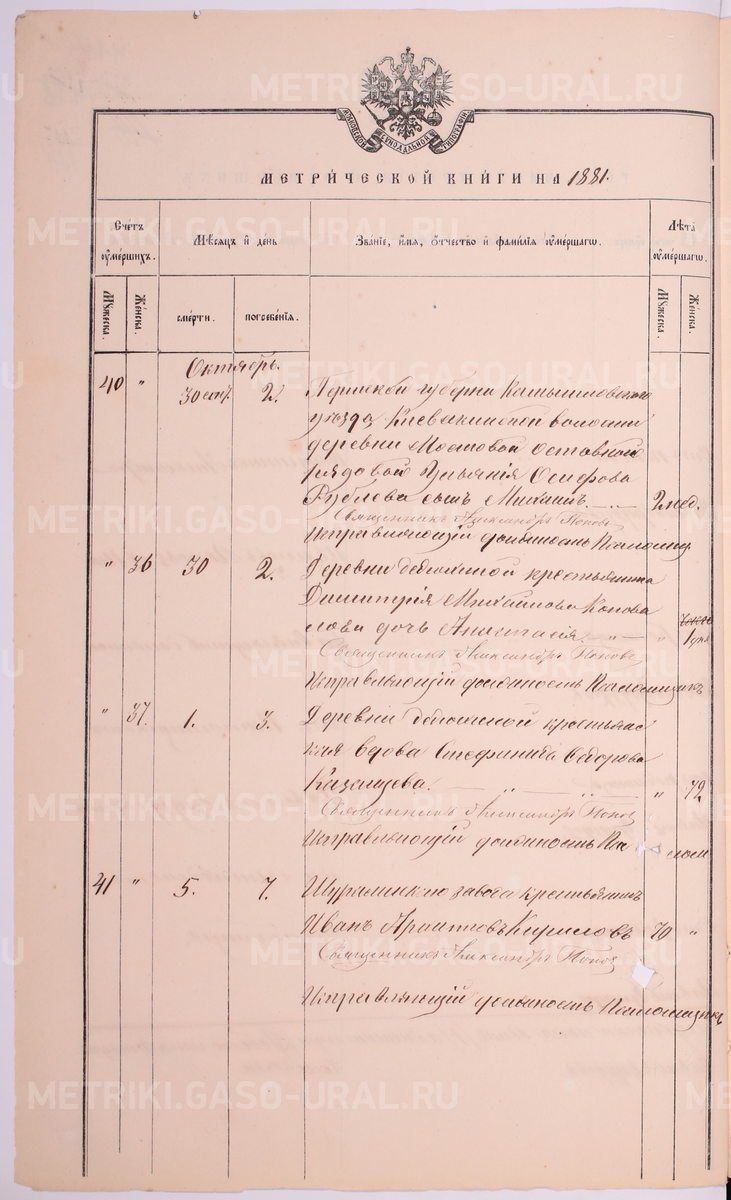 МОСКОВСКОЙ СѴНОДАЛЬНОЙ ТИПОГРАФІИ
МЕТРИ́ЧЕСКОЙ КНИ́ГИ НА 1881.
Сче́тъ ᲂумершихъ.
Мѣ́сяцъ и҆ де́нь
Зва́нїе, и҆́мѧ, ѻ҆́тчество и҆ фами́лїѧ ᲂуме́ршагѡ.
Лѣта̀ ᲂуме́ршагѡ.
Мꙋ́жеска.
Же́нска.
сме́рти.
погребе́нїѧ.
Мꙋ́жеска.
Же́нска.
Октябрь.
40 " 30 сент. 2. Пермской губерніи Камышловскаго
уѣзда волости
деревни Мостовой отставной
рядовой Осифова
Рублева сынъ 2 нед.
Священникъ Александръ Поповъ
Исправляющій должность Псаломщ.
" 36 30 2. Деревни крестьянина
Димитрія Михайлова Конова
лова дочь Анастасія " 1 дня
Священникъ Александръ Поповъ
Исправляющій должность Псаломщикъ
" 37. 1. 3. Деревни крестьянс
кая вдова Стефанида Ѳедорова
Казанцева. " 72
Священникъ Александръ Поповъ
Исправляющій должность Пса лом
41 " 5. 7. Шуралинскаго завода крестьянинъ
Иванъ Кириловъ 70 "
Священникъ Александръ Поповъ
Исправляющій должность Псаломщикъ
METRIKI.GASO-URAL.RU